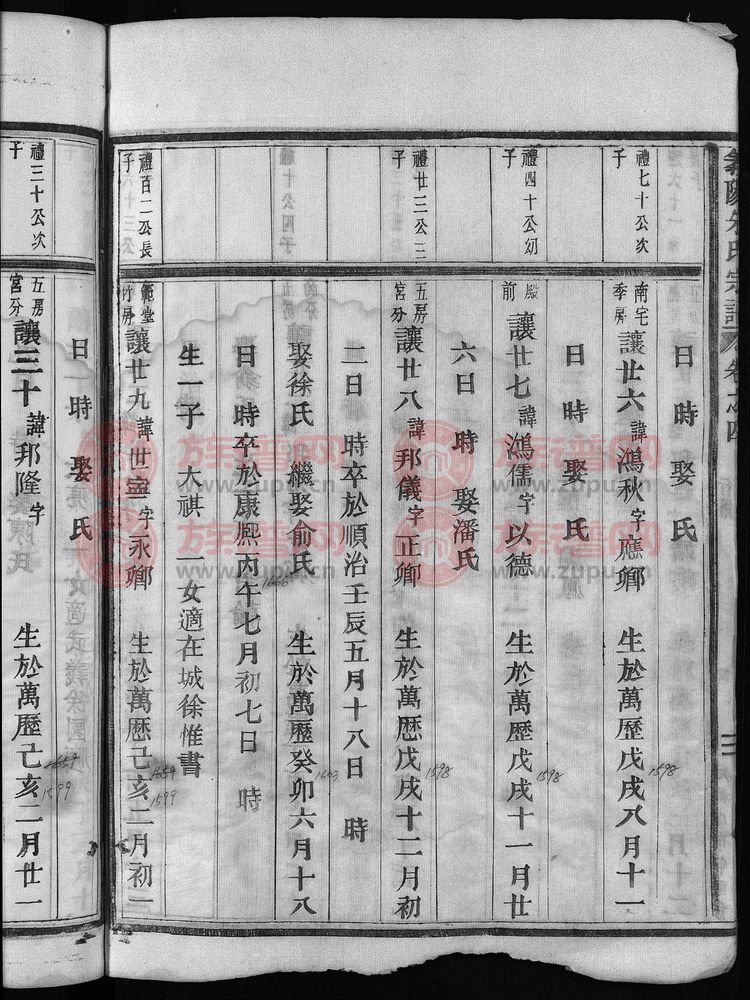 日　時　娶　氏
禮七十公次子
南宅季房　讓廿六　諱鴻秋字應卿　生於萬歷戊戌八月十一
1598
日　時　娶　氏
禮四十公幼子
殿前　讓廿七　諱鴻儒字以德　生於萬歷戊戌十一月廿
1598
六日　時　娶潘氏
禮廿三公三子
五房宮分　讓廿八　諱邦儀字正卿　生於萬歷戊戌十二月初
1598
二日　時卒於順治壬辰五月十八日　時
娶徐氏　繼娶俞氏　生於萬歷癸卯六月十八
1603
日　時卒於康熙丙午七月初七日　時
1666
生一子　大祺　一女適在城徐惟書
禮百二公長子
範堂竹房　讓廿九　諱世寍字永卿　生於萬歷己亥二月初一
1659
1599
日　時　娶　氏
禮三十公次子
五房宮分　讓三十　諱邦隆字　生於萬歷己亥二月廿一
1659
1599
族譜网
www.zupu.cn